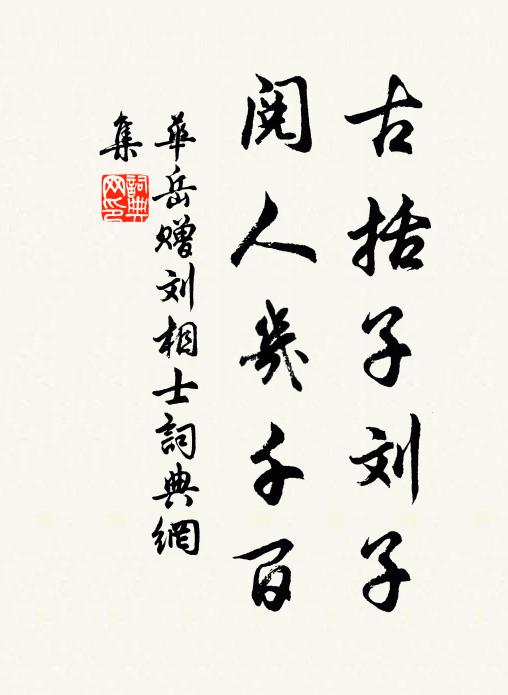 古括子刘子
阅人幾千百
華岳赠刘相士詞典網
集
詞典网印